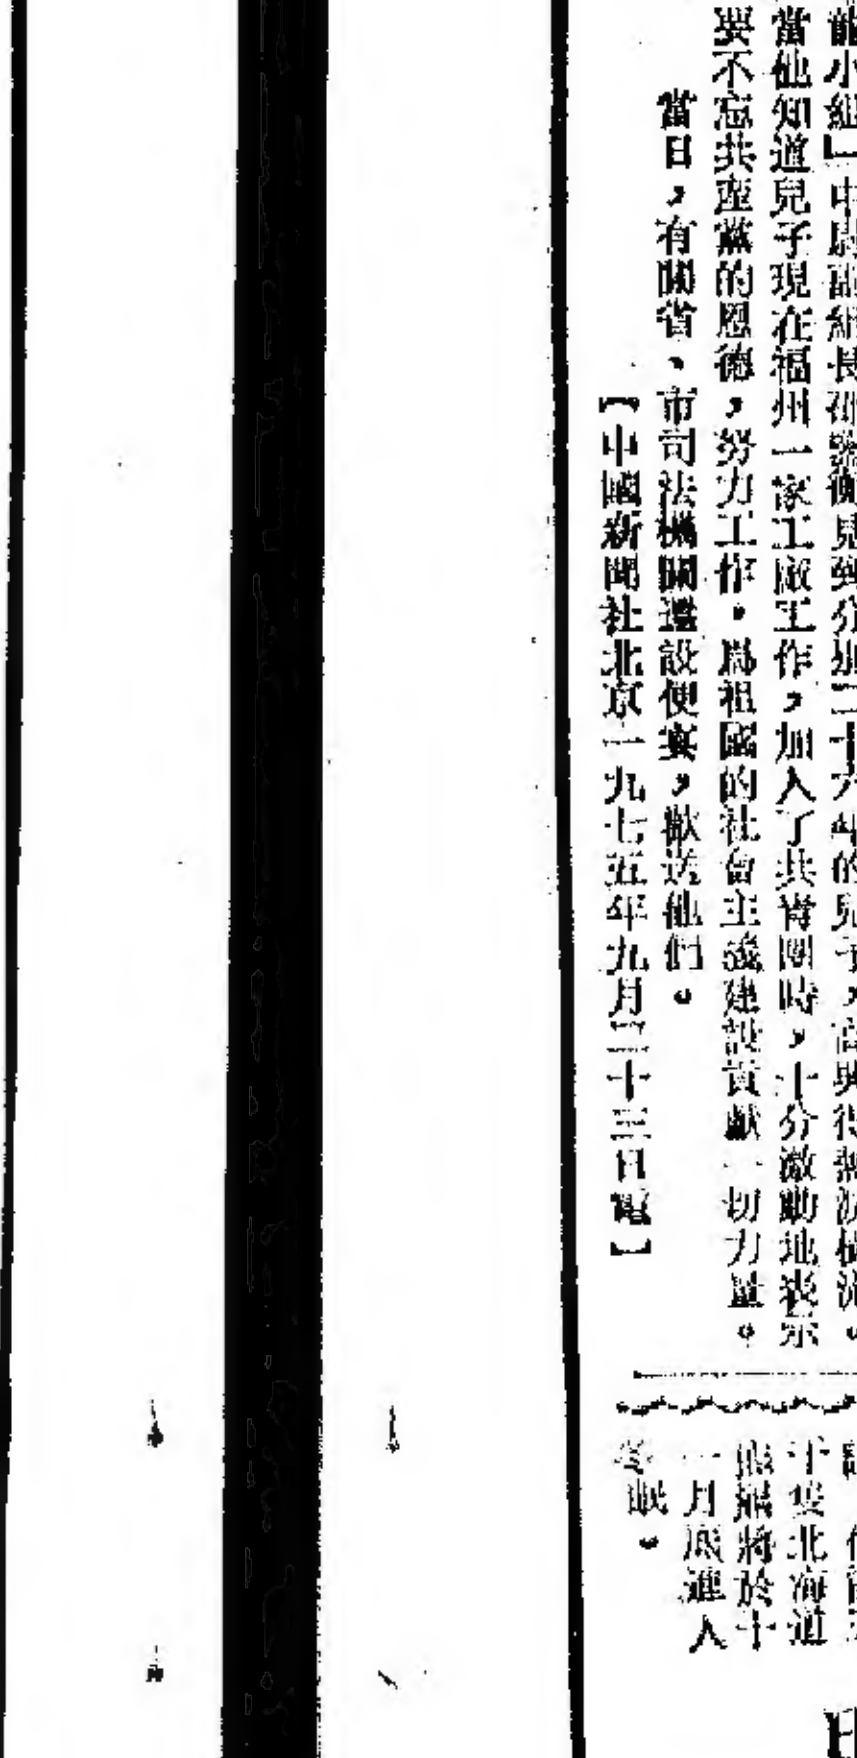 龍小組」中尉副組長邵 見到分別二十六年的兒子,高興得熱淚橫流。
當他知道兒子現在福州一家工廠工作,加入了共青團時,十分激動地表示
要不忘共產黨的恩德,努力工作,爲祖國的社會主義建設貢獻一切力量。
當日,有關省、市司法機關還設便宴,歡送他們。
【中國新聞社北京一九七五年九月二十三日電】
十隻北海道
熊 將於十
一月底進入
冬眠。